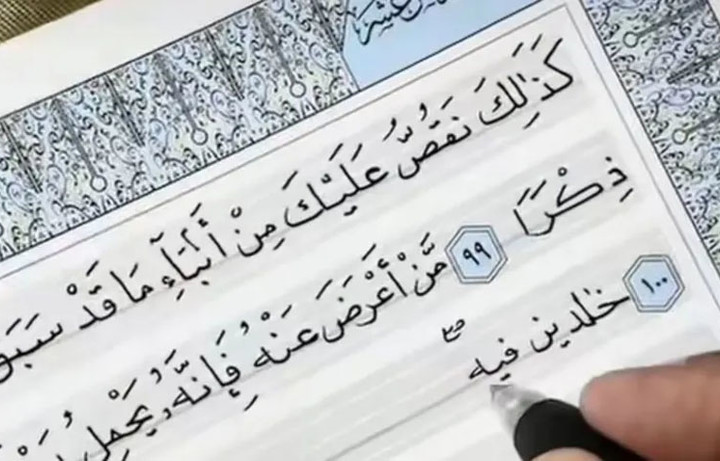 كَذَٰلِكَ نَقُصُّ عَلَيْكَ مِنْ أَنۢبَآءِ مَا قَدْ سَبَقَ
ذِكْرًا ٩٩ مَّنْ أَعْرَضَ عَنْهُ فَإِنَّهُۥ يَحْمِلُ
١٠٠ خٰلدين فيه ۖ